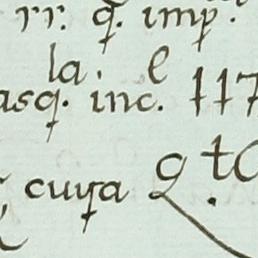 rr. q. imp.
la. e
asq. inc. 117
cuya q to